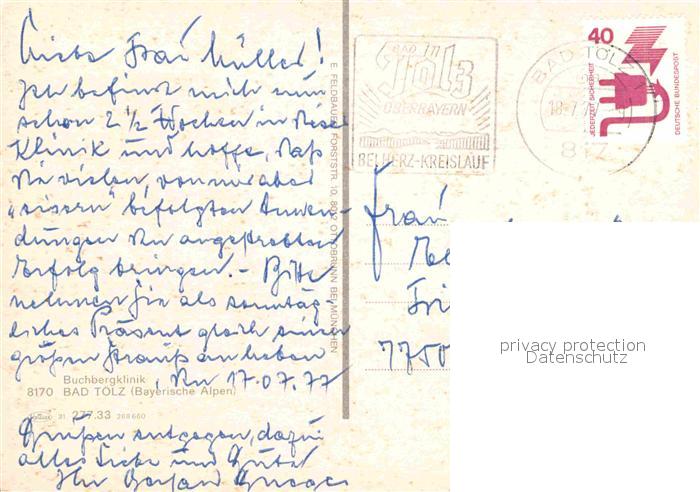 Liebe Frau Müller!
Ich befinde mich nun
schon 2 1/2 Wochen in dieser
Klinik und hoffe, daß
die vielen, von mir aber
"eisern" befolgten Anwen-
dungen den angestrebten
Erfolg bringen. - Bitte
nehmen Sie als sonntäg-
liches Präsent gleich einen
großen Strauß an lieben
, den 17.07.77
Grüßen entgegen, dazu
alles Liebe und Gute
Ihr
Buchbergklinik
8170 BAD TÖLZ (Bayerische Alpen)
21 277.33 268660
E. FELDBAUER, FORSTSTR. 10, 8012 OTTOBRUNN BEI MÜNCHEN
BAD
Tölz
OBERBAYERN
BEI HERZ-KREISLAUF
BAD TÖLZ
18.7.
817
40
JEDERZEIT SICHERHEIT
DEUTSCHE BUNDESPOST
Frau
7750
privacy protection
Datenschutz